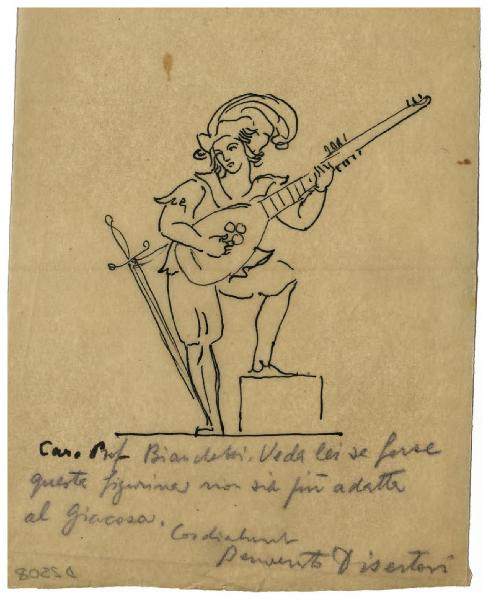 Caro Prof Bianchetti. Veda lei se forse
questa figurina non sia più adatta
al Giacosa.
Cordialmente
Benvenuto Disertori
D2508